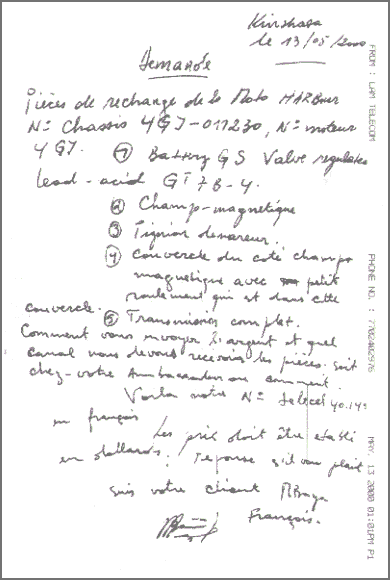 Kinshasa
le 13/05/2000
Demande
Pièces de rechange de la Moto HARBour
N° Chassis 4GJ-011230, N° moteur
4GJ. ① Battery GS Valve regulated
lead-acid GT 7B-4.
② Champ-magnetique
③ Pignion demareur.
④ couvercle du coté champ
magnetique avec petit
roulement qui est dans cette
couvercle.
⑤ Transmission complet.
Comment vous envoyer l'argent et quel
canal nous devons recevoir les pièces. soit
chez-votre Ambassadeur ou comment.
Voila notre N° telecel 40.149
en français
Les prix doit être etabli
en dollards. reponse s'il vous plait
suis votre client
François.
FROM : LAM TELECOM
PHONE NO. : 7702402976
MAY. 13 2000 01:01PM P1